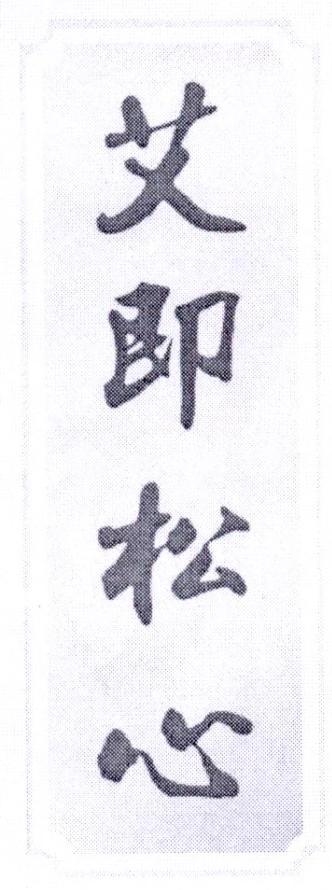 艾即松心